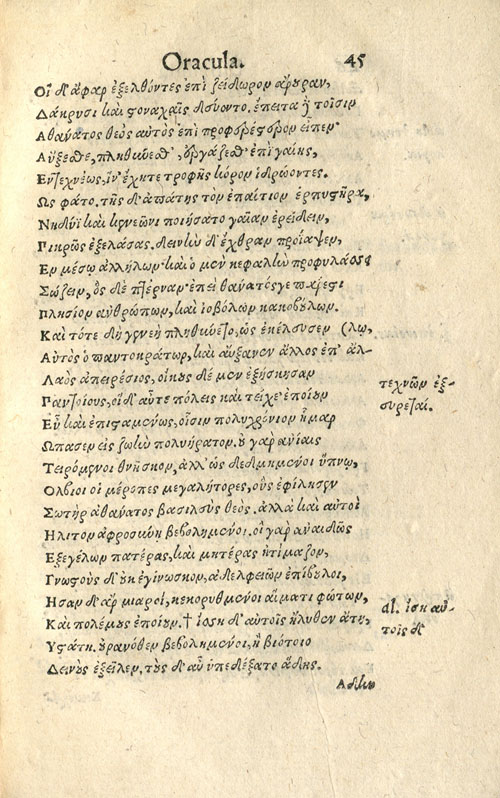 Oracula. 45
Οἱ δ' ἄφαρ ἐξελθόντες ἐπὶ ζείδωρον ἄρουραν,
Δάκρυσι καὶ στοναχαῖς δεύοντο. ἔπειτα ἢ τοῖσιν
Αθάνατος θεὸς αὐτὸς ἐπὶ προφερέστερον εἶπεν·
Αὔξεσθε, πληθύνεσθ', ἐργάζεσθ' ἐπὶ γαίης,
Εντεχνέως, ἵν' ἔχητε τροφῆς κόρον ἱδρώοντες.
Ως φάτο. τῆς δ' ἀπάτης τὸν ἐπαίτιον ἑρπυστῆρα,
Νηδύϊ καὶ κενεῶνι ποιήσατο γαῖαν ἐρείδειν,
Πικρῶς ἐξελάσας. δεινὴν δ' ἔχθραν προΐαψεν,
Εν μέσῳ ἀλλήλων. καὶ ὁ μὲν κεφαλὴν προφυλάσσει
Σώζειν, ὃς δὲ πτέρναν. ἐπεὶ θάνατός γε πάρεστι
Πλησίον ἀνθρώπων, καὶ ἰοβόλων κακοβούλων.
Καὶ τότε δὴ γενεὴ πληθύνετο, ὡς ἐκέλευσεν (λῳ,
Αὐτὸς ὁ παντοκράτωρ, καὶ αὔξανεν ἄλλος ἐπ' ἄλ-
Λαὸς ἀπειρέσιος, οἴκους δὲ μὲν ἐξήσκησαν
τεχνῶν ἐξ-
Παντοίους, οἱ δ' αὖτε πόλεις καὶ τείχε' ἐποίουν
συρεται.
Εὖ καὶ ἐπισταμένως, οἷσιν πολυχρόνιον ἦμαρ
Ωπασεν εἰς ζωὴν πολυήρατον. οὐ γὰρ ἀνίαις
Τειρόμενοι θνῆσκον, ἀλλ' ὡς δεδμημένοι ὕπνῳ,
Ολβιοι οἱ μέροπες μεγαλήτορες, οὓς ἐφίλησεν
Σωτὴρ ἀθάνατος βασιλεὺς θεός. ἀλλὰ καὶ αὐτοὶ
Ηλιτον ἀφροσύνῃ βεβολημένοι. οἱ γὰρ ἀναιδῶς
Εξεγέλων πατέρας, καὶ μητέρας ἠτίμαζον,
Γνωστοὺς δ' οὐκ ἐγίνωσκον, ἀδελφειῶν ἐπίβουλοι,
Ησαν δ' ἂρ μιαροί, κεκορυθμένοι αἵματι φώτων,
Καὶ πολέμους ἐποίουν. † ἰοσκ δ' αὐτοῖς ἤλυθεν ἄτη,
al. ἰσκ αὐ-
τοῖς δ'
Υστάτη. οὐρανόθεν βεβολημένοι, ἣ βιότοιο
Δεινοὺς ἐξεῖλεν. τοὺς δ' αὖ ὑπεδέξατο ἅδης.
Αδην